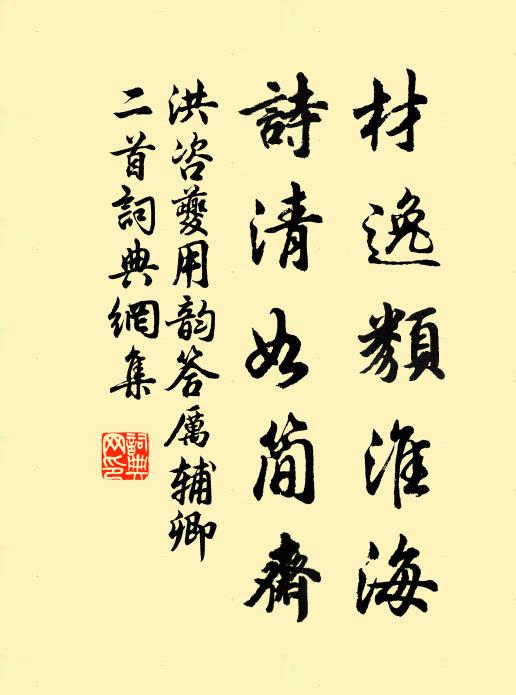 材逸類淮海
詩清如簡齋
洪咨夔用韵答厲輔卿
二首詞典網集
詞典網印